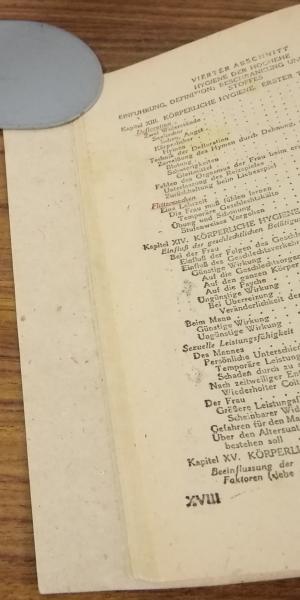 VIERTER ABSCHNITT
HYGIENE DER HOCHEHE
EINFÜHRUNG, DEFINITION, BESCHRÄNKUNG UN
STOFFES
Kapitel XIII. KÖRPERLICHE HYGIENE: ERSTER
Defloration
Zwei Widerstände
Seelischer
Scham, Angst
Körperlicher
Hymen
Technik der Defloration
Zerreißung des Hymen durch Dehnung,
Blutung
Schwierigkeiten
Gleitmittel
Fehlen des Orgasmus der Frau beim ers
Unterlassung des Reizspieles
Zurückhaltung beim Liebesspiel
Flitterwochen
Eine Lehrzeit
Die Frau muß fühlen lernen
Temporäre Geschlechtskälte
Übung und Schonung
Stufenweises Vorgehen
Kapitel XIV. KÖRPERLICHE HYGIENE
Einfluß der geschlechtlichen Betätigu
Bei der Frau
Einfluß der Folgen des Geschl
Einfluß des Geschlechtsverkehr
Günstige Wirkung
Auf die Geschlechtsorgan
Auf den ganzen Körper
Auf die Psyche
Ungünstige Wirkung
Bei Überreizung
Veränderlichkeit der
Beim Mann
Günstige Wirkung
Ungünstige Wirkung
Sexuelle Leistungsfähigkeit
Des Mannes
Persönliche Unterschied
Temporäre Leistung
Schaden durch zu
Nach zeitweiliger Ent
Wiederholter Coit
Der Frau
Größere Leistungsf
Scheinbarer Wid
Gefahren für den Ma
Über den Altersunt
bestehen soll
Kapitel XV. KÖRPERLI
Beeinflussung der
Faktoren (
XVIII